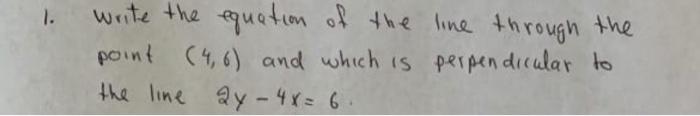 1. Write the equation of the line through the
point (4,6) and which is perpendicular to
the line 2y - 4x = 6.